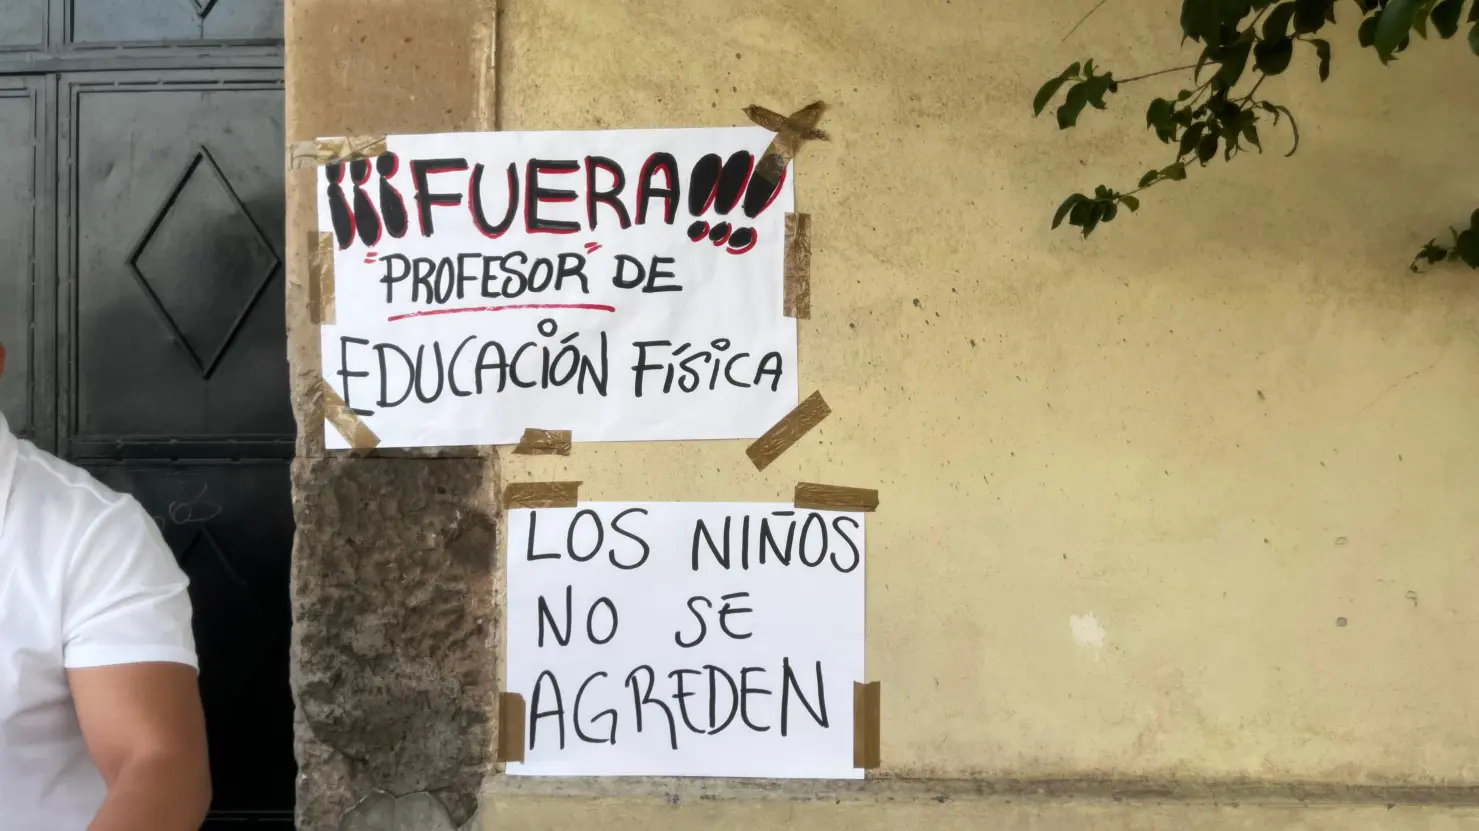 ¡¡¡FUERA!!!
"PROFESOR" DE
EDUCACIÓN FÍSICA
LOS NIÑOS
NO SE
AGREDEN